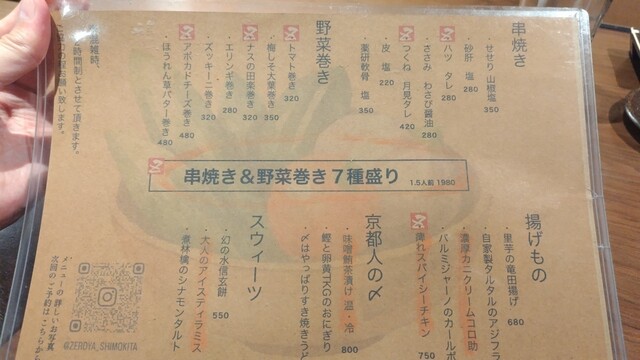 串焼き
せせり 山椒塩 350
砂肝 塩 280
ハツ タレ 280
ささみ わさび醤油 280
つくね 月見タレ 420
皮 塩 220
薬研軟骨 塩 350
野菜巻き
トマト巻き 320
梅しそ大葉巻き 350
ナスの田楽巻き 320
エリンギ巻き 280
ズッキーニ巻き 320
アボカドチーズ巻き 480
ほうれん草バター巻き 480
混雑時、
2時間制とさせて頂きます。
お願い致します。
串焼き&野菜巻き7種盛り 1.5人前 1980
揚げもの
里芋の竜田揚げ 680
自家製タルタルのアジフラ
濃厚カニクリームコロ助
パルミジャーノのカールポ
痺れスパイシーチキン 750
京都人の〆
味噌鮪茶漬け 温・冷 800
鰹と卵黄TKGのおにぎり
〆はやっぱりすき焼きうど
スウィーツ
幻の水信玄餅 550
大人のアイスティラミス
煮林檎のシナモンタルト
メニューの詳しいお写真
次回のご予約はこちらから
@ZEROYA_SHIMOKITA